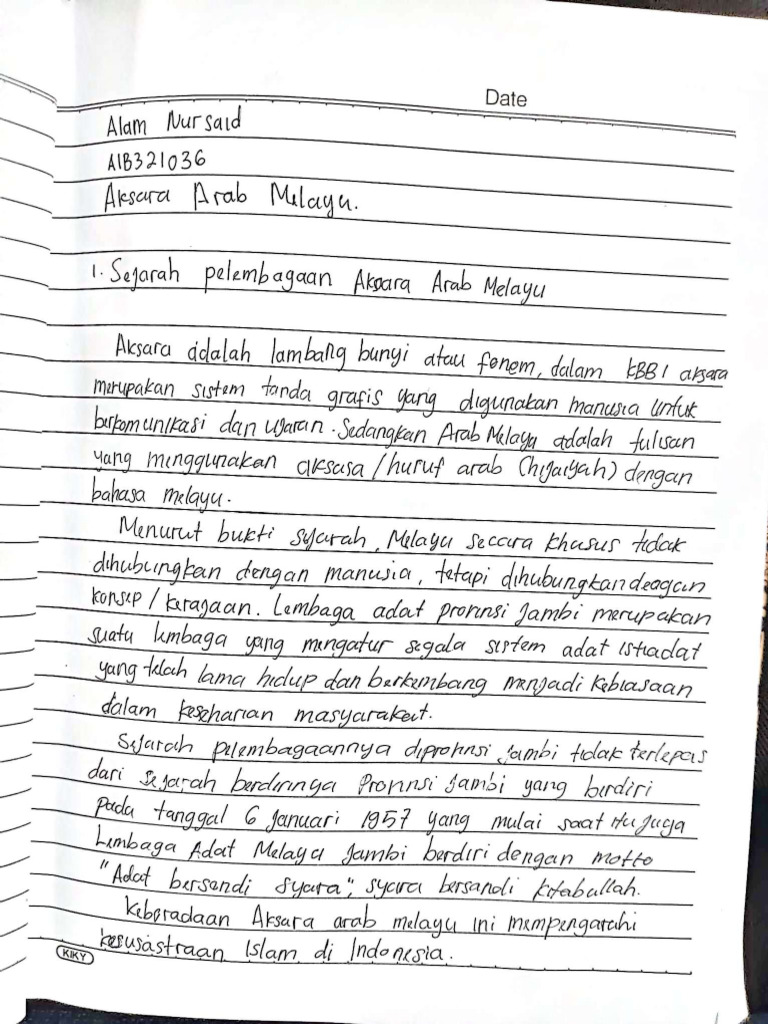 Date
Alam Nursaid
A1B321036
Aksara Arab Melayu.
1. Sejarah pelembagaan Aksara Arab Melayu
Aksara adalah lambang bunyi atau fonem, dalam KBBI aksara
merupakan sistem tanda grafis yang digunakan manusia untuk
berkomunikasi dan waran. Sedangkan Arab Melayu adalah tulisan
yang menggunakan aksasa/huruf arab (hijaiyah) dengan
bahasa melayu.
Menurut bukti sejarah, Melayu seccara khusus tidak
dihubungkan dengan manusia, tetapi dihubungkan deagan
konsep/kerajaan. Lembaga adat provinsi Jambi merupakan
suatu lembaga yang mengatur segala sistem adat istiadat
yang telah lama hidup dan berkembang menjadi kebiasaan
dalam keseharian masyarakat.
Sejarah pelembagaannya diprovinsi jambi tidak terlepas
dari sejarah berdirinya Provinsi Jambi yang berdiri
pada tanggal 6 Januari 1957 yang mulai saat itu juga
Lembaga Adat Melayu Jambi berdiri dengan motto
"Adat bersendi syara", syara bersandi kitabullah.
Keberadaan Aksara arab melayu ini mempengaruhi
kesusastraan Islam di Indonesia.
KIKY